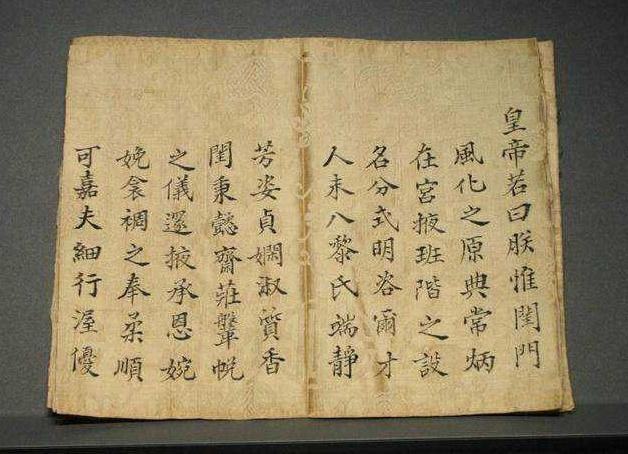 皇帝若曰朕惟閨門
風化之原典常炳
在宮掖班階之設
名分式明咨爾才
人未八黎氏端靜
芳姿貞嫻淑質香
閨秉懿齋莊鞶帨
之儀邃掖承恩婉
娩衾裯之奉柔順
可嘉夫細行渥優